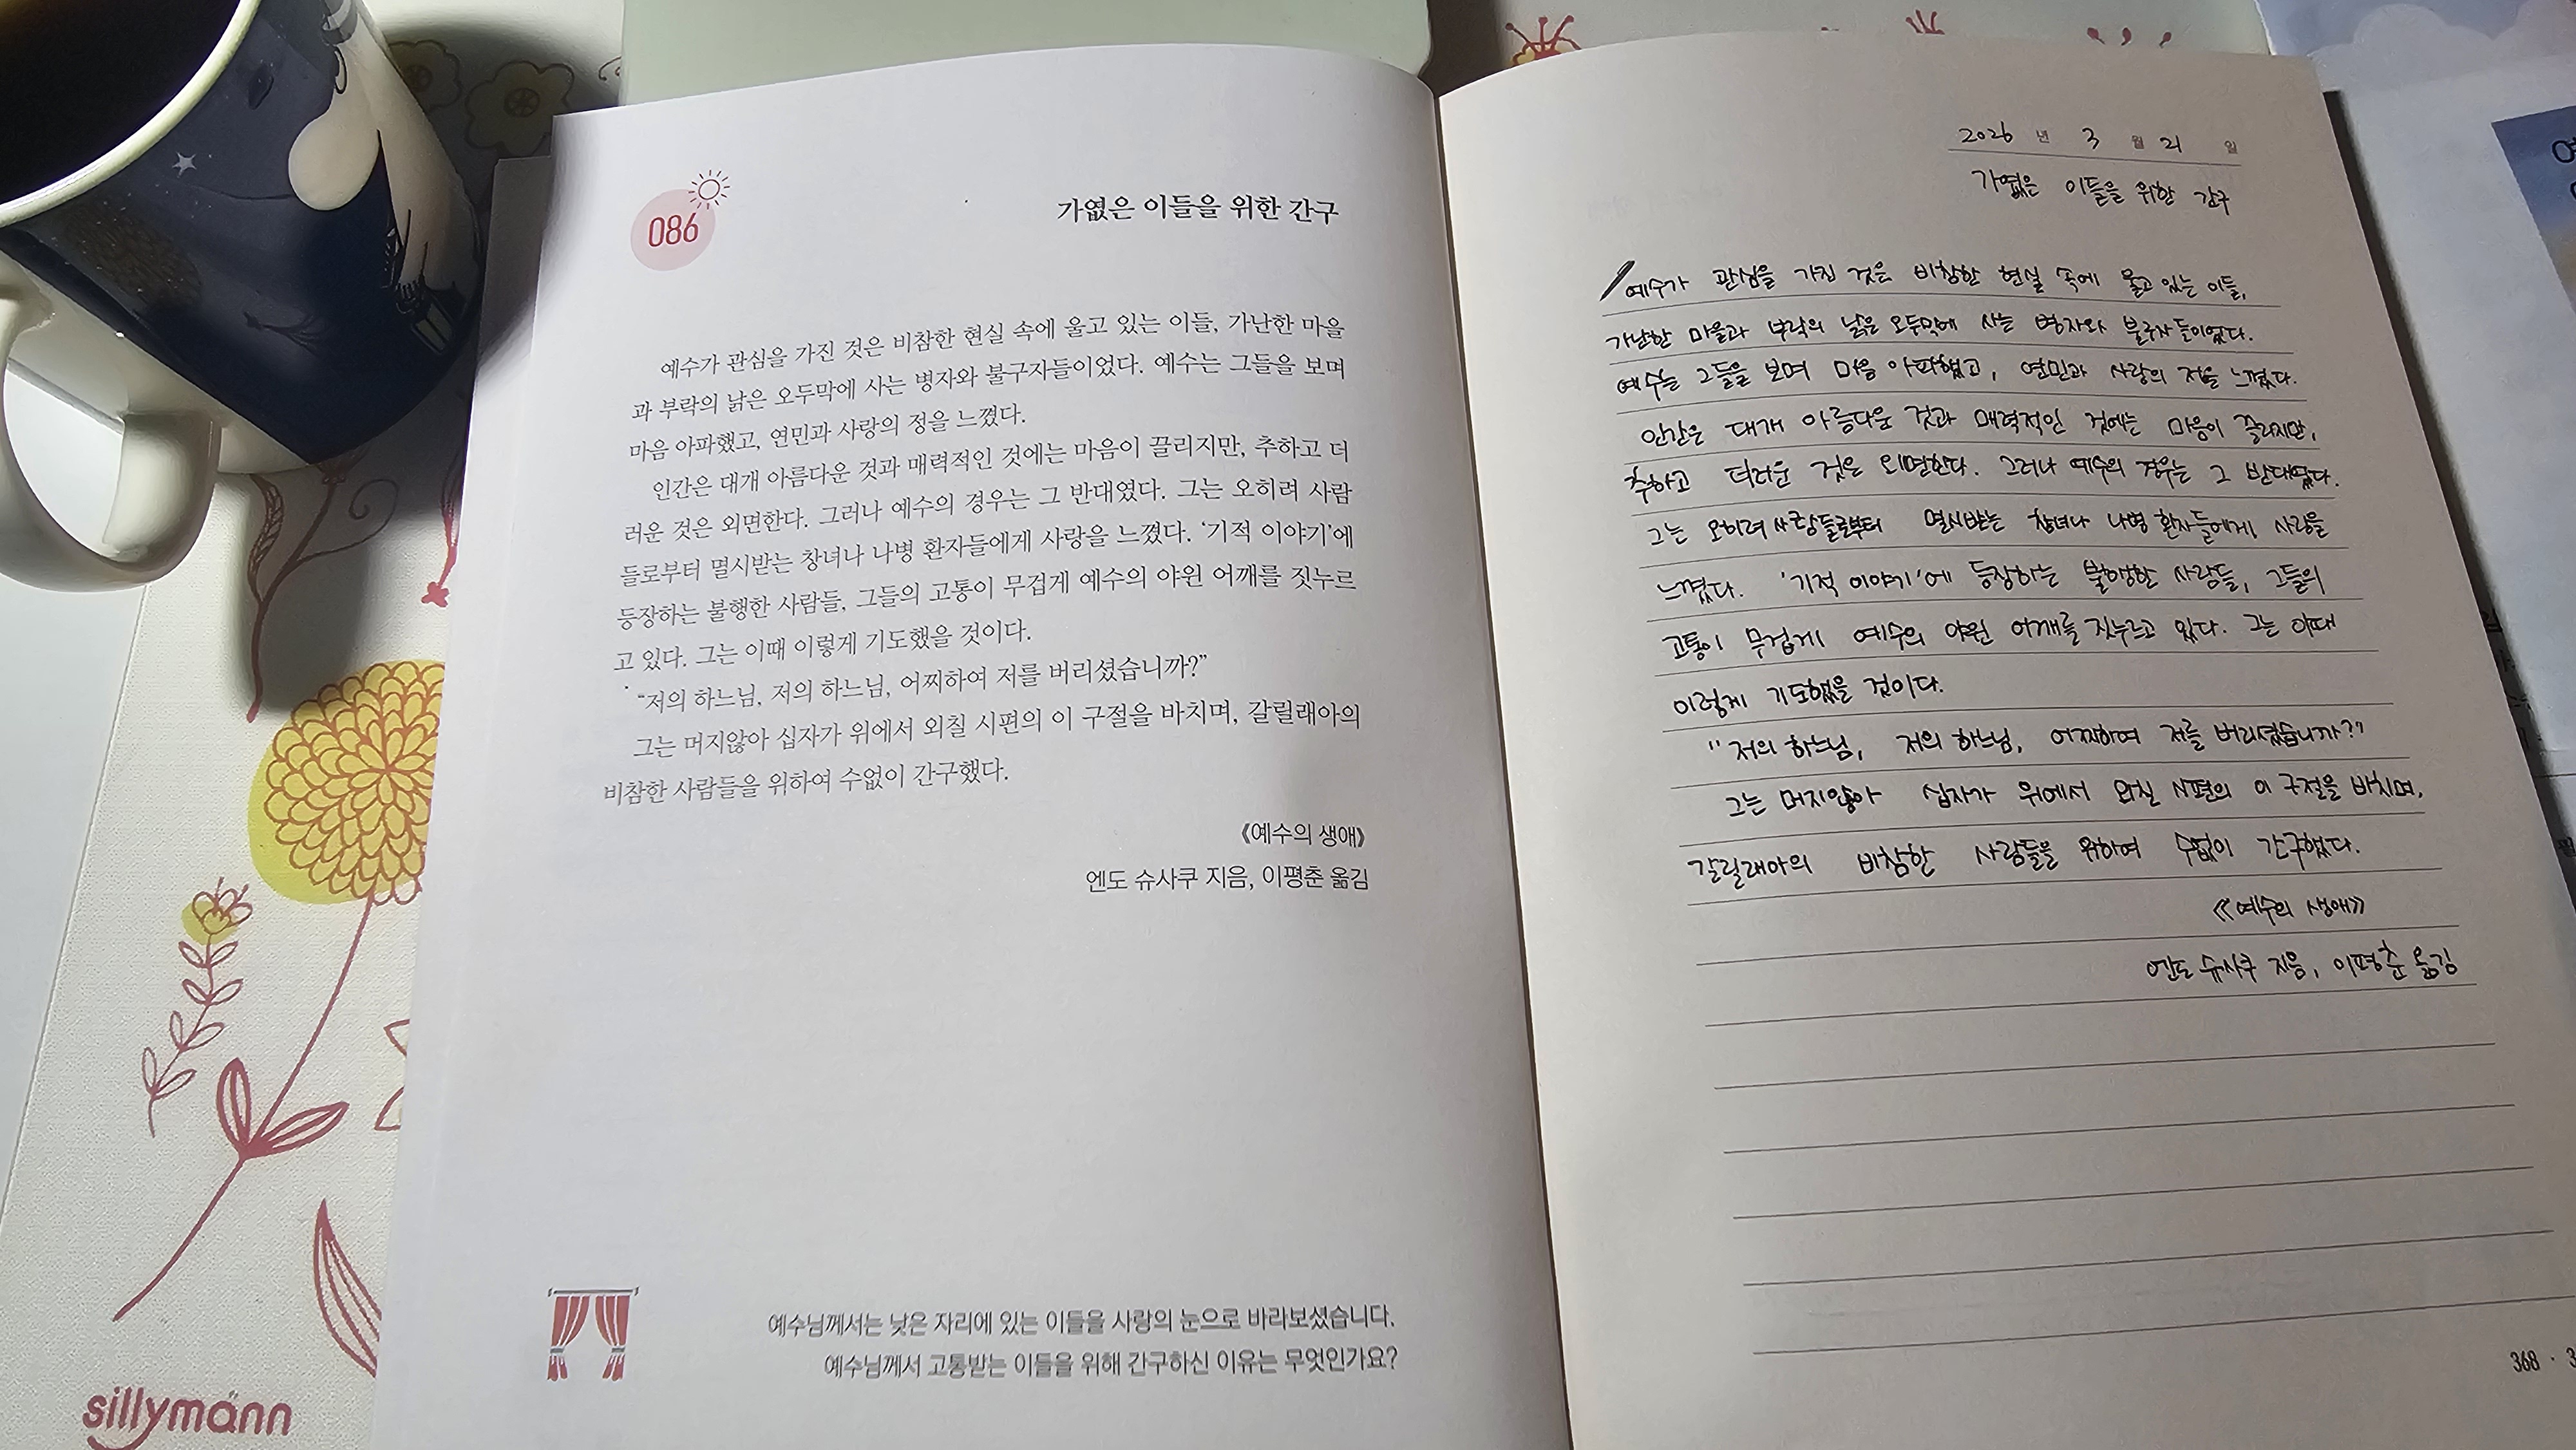 086
가엾은 이들을 위한 간구
예수가 관심을 가진 것은 비참한 현실 속에 울고 있는 이들, 가난한 마을
과 부락의 낡은 오두막에 사는 병자와 불구자들이었다. 예수는 그들을 보며
마음 아파했고, 연민과 사랑의 정을 느꼈다.
인간은 대개 아름다운 것과 매력적인 것에는 마음이 끌리지만, 추하고 더
러운 것은 외면한다. 그러나 예수의 경우는 그 반대였다. 그는 오히려 사람
들로부터 멸시받는 창녀나 나병 환자들에게 사랑을 느꼈다. ‘기적 이야기’에
등장하는 불행한 사람들, 그들의 고통이 무겁게 예수의 야윈 어깨를 짓누르
고 있다. 그는 이때 이렇게 기도했을 것이다.
“저의 하느님, 저의 하느님, 어찌하여 저를 버리셨습니까?”
그는 머지않아 십자가 위에서 외칠 시편의 이 구절을 바치며, 갈릴래아의
비참한 사람들을 위하여 수없이 간구했다.
《예수의 생애》
엔도 슈사쿠 지음, 이평춘 옮김
예수님께서는 낮은 자리에 있는 이들을 사랑의 눈으로 바라보셨습니다.
예수님께서 고통받는 이들을 위해 간구하신 이유는 무엇인가요?
sillymann
2026 년 3 월 21 일
가엾은 이들을 위한 간구
예수가 관심을 가진 것은 비참한 현실 속에 울고 있는 이들,
가난한 마을과 부락의 낡은 오두막에 사는 병자와 불구자들이었다.
예수는 그들을 보며 마음 아파했고, 연민과 사랑의 정을 느꼈다.
인간은 대개 아름다운 것과 매력적인 것에는 마음이 끌리지만,
추하고 더러운 것은 외면한다. 그러나 예수의 경우는 그 반대였다.
그는 오히려 사람들로부터 멸시받는 창녀나 나병 환자들에게 사랑을
느꼈다. '기적 이야기'에 등장하는 불행한 사람들, 그들의
고통이 무겁게 예수의 야윈 어깨를 짓누르고 있다. 그는 이때
이렇게 기도했을 것이다.
"저의 하느님, 저의 하느님, 어찌하여 저를 버리셨습니까?"
그는 머지않아 십자가 위에서 외칠 시편의 이 구절을 바치며,
갈릴래아의 비참한 사람들을 위하여 수없이 간구했다.
《예수의 생애》
엔도 슈사쿠 지음, 이평춘 옮김
368 ·